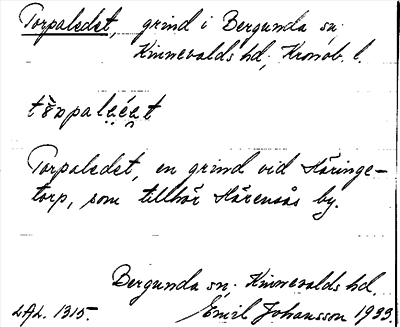 Torpaledet, grind i Bergunda sn.
Kinnevalds hd, Kronob. l.
Torpaledet, en grind vid Häringe-
torp, som tillhör Härensås by.
Bergunda sn. Kinnevalds hd.
LAL. 1315. Emil Johansson 1933.